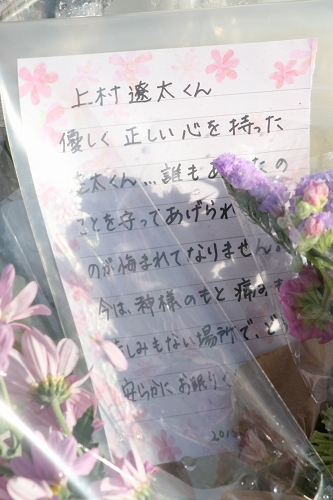 上村遼太くん
優しく正しい心を持った
遼太くん…誰もあなたの
ことを守ってあげられ
のが悔まれてなりません。
今は、神様のもと痛みも
しみもない場所で、ど
安らかにお眠り
201